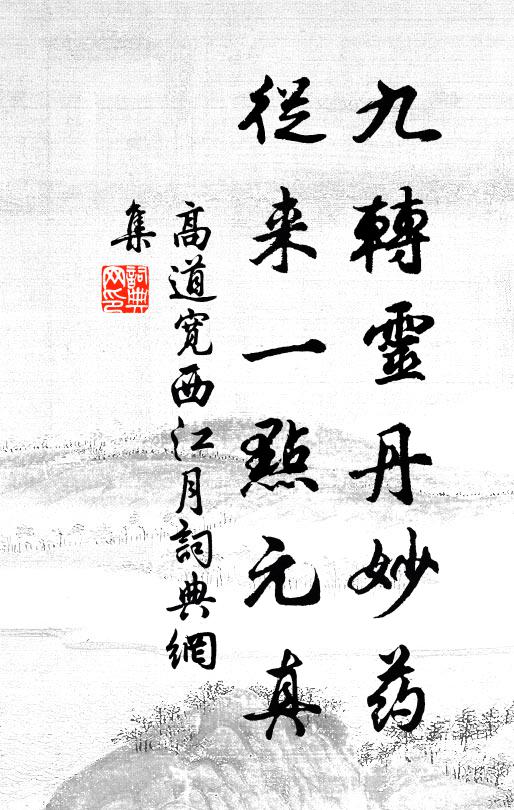 九轉靈丹妙药
從来一點元真
高道寬西江月詞典網
集
詞典网印